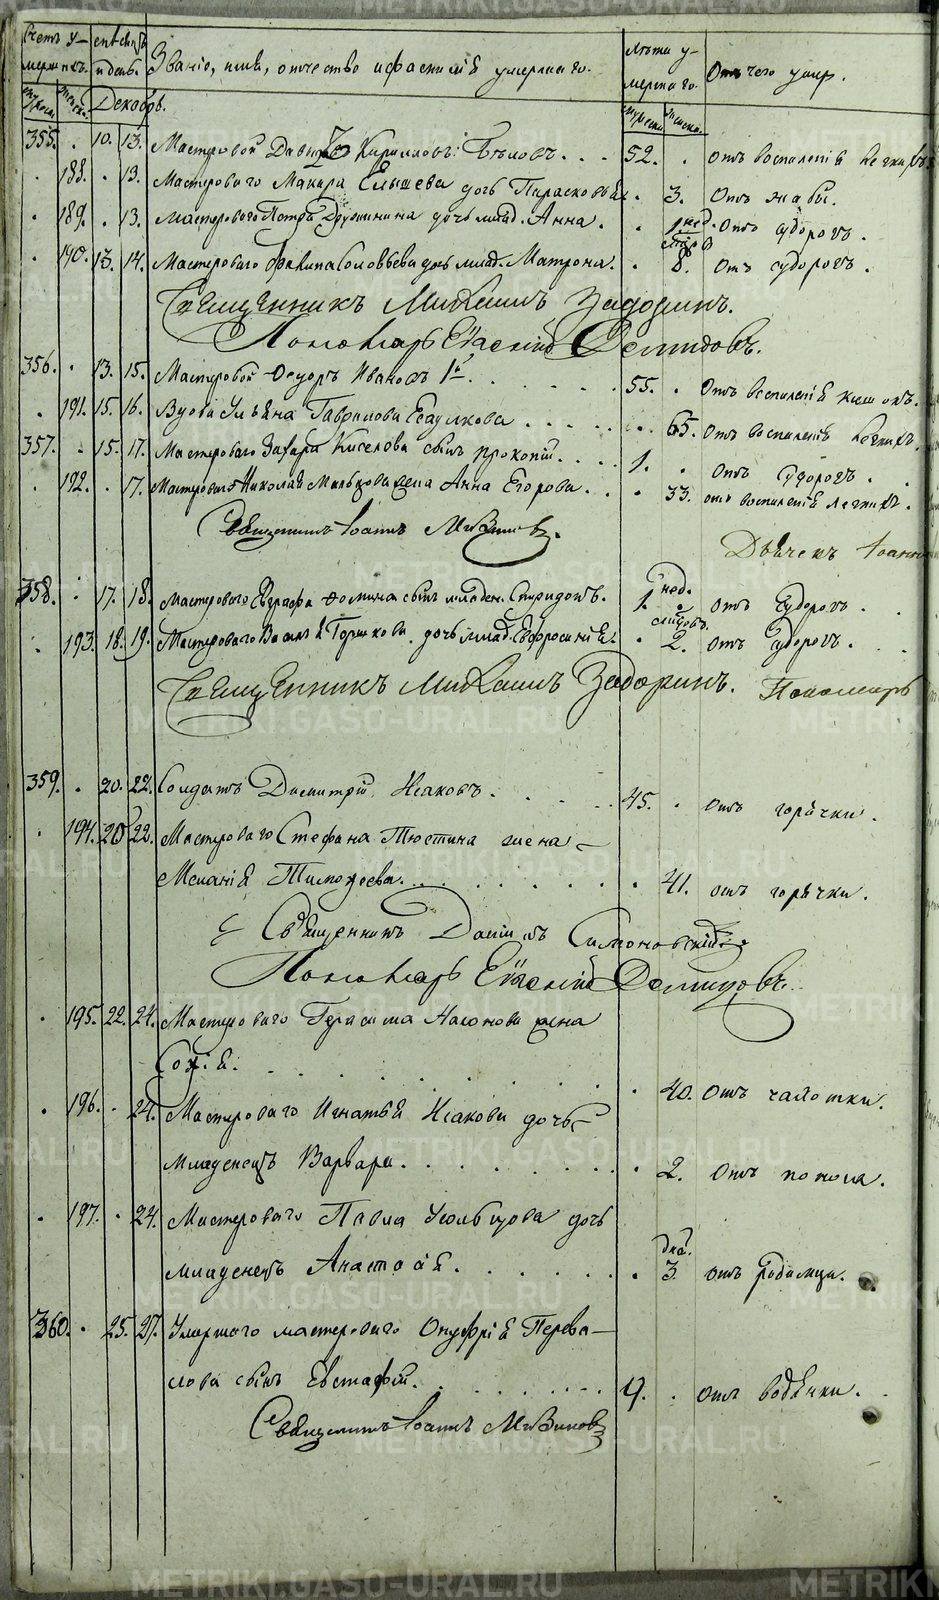 Счетъ у- мѣсяцъ Званіе, имя, отчество и фамилія умершаго. Лѣта у- Отъ чего умеръ.
мершихъ. и день. мершаго.
Декабрь.
355. 10. 13. Мастеровой Давыдъ Кирилловъ Бѣловъ. 52. отъ воспаленія легкихъ
188. 13. Мастероваго Макара Елышева дочь Парасковья. 3. отъ жабы.
189. 13. Мастероваго Петра Дружинина дочь млад. Анна. 1. нед. отъ судорогъ.
190. 13. 14. Мастероваго Филипа Соловьева дочь млад. Матрона. 8. отъ судорогъ.
Священникъ Михаилъ Задоринъ.
Пономарь Евгеній Демидовъ.
356. 13. 15. Мастеровой Ѳедоръ Ивановъ 1й. 55. отъ воспаленія кишокъ.
191. 15. 16. Вдова Ульяна Гаврилова Есаулкова 65. отъ воспаленія легкихъ.
357. 15. 17. Мастероваго Захара Киселова сынъ Прокопій. 1. отъ судорогъ.
192. 17. Мастероваго Николая Мальцова жена Анна Егорова. 33. отъ воспаленія легкихъ.
Священникъ Іоаннъ
Дьячекъ Іоаннъ
358. 17. 18. Мастероваго Евграфа Ѳомина сынъ младен. Спиридонъ. 1. нед. отъ судорогъ.
193. 18. 19. Мастероваго Василья Горшкова дочь млад. Евфросинія. 2. отъ судорогъ.
Священникъ Михаилъ Задоринъ. Пономарь
359. 20. 22. Солдатъ Дмитрій Исаковъ. 45. отъ горячки.
194. 20 22. Мастероваго Стефана Тюстина жена
Меланія Тимофеева. 41. отъ горячки.
Священникъ Даніилъ Симоновскій
Пономарь Евгеній Демидовъ.
195. 22. 24. Мастероваго Герасима Насонова жена
Софія. 40. отъ чахотки.
196. 24. Мастероваго Игнатья Исакова дочь
младенецъ Варвара. 2. отъ поноса.
197. 24. Мастероваго Павла Усольцова дочь
младенецъ Анастасія. 3. дна. отъ родимца.
360. 25. 27. Умершаго мастероваго Онуфрія Перева-
лова сынъ Евстафій. 9. отъ водянки.
Священникъ Іоаннъ
METRIKI.GASO-URAL.RU